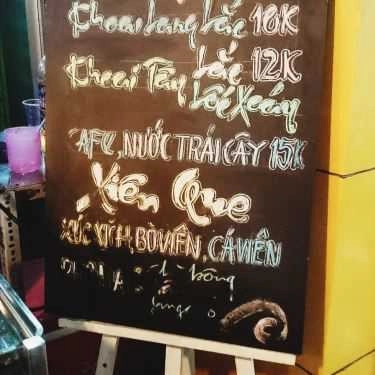 Khoai Lang Lắc 10K
Khoai Tây Lắc 12K
Lốc Xoáy
CAFE, NƯỚC TRÁI CÂY 15K
Xiên Que
XÚC XÍCH, BÒ VIÊN, CÁ VIÊN